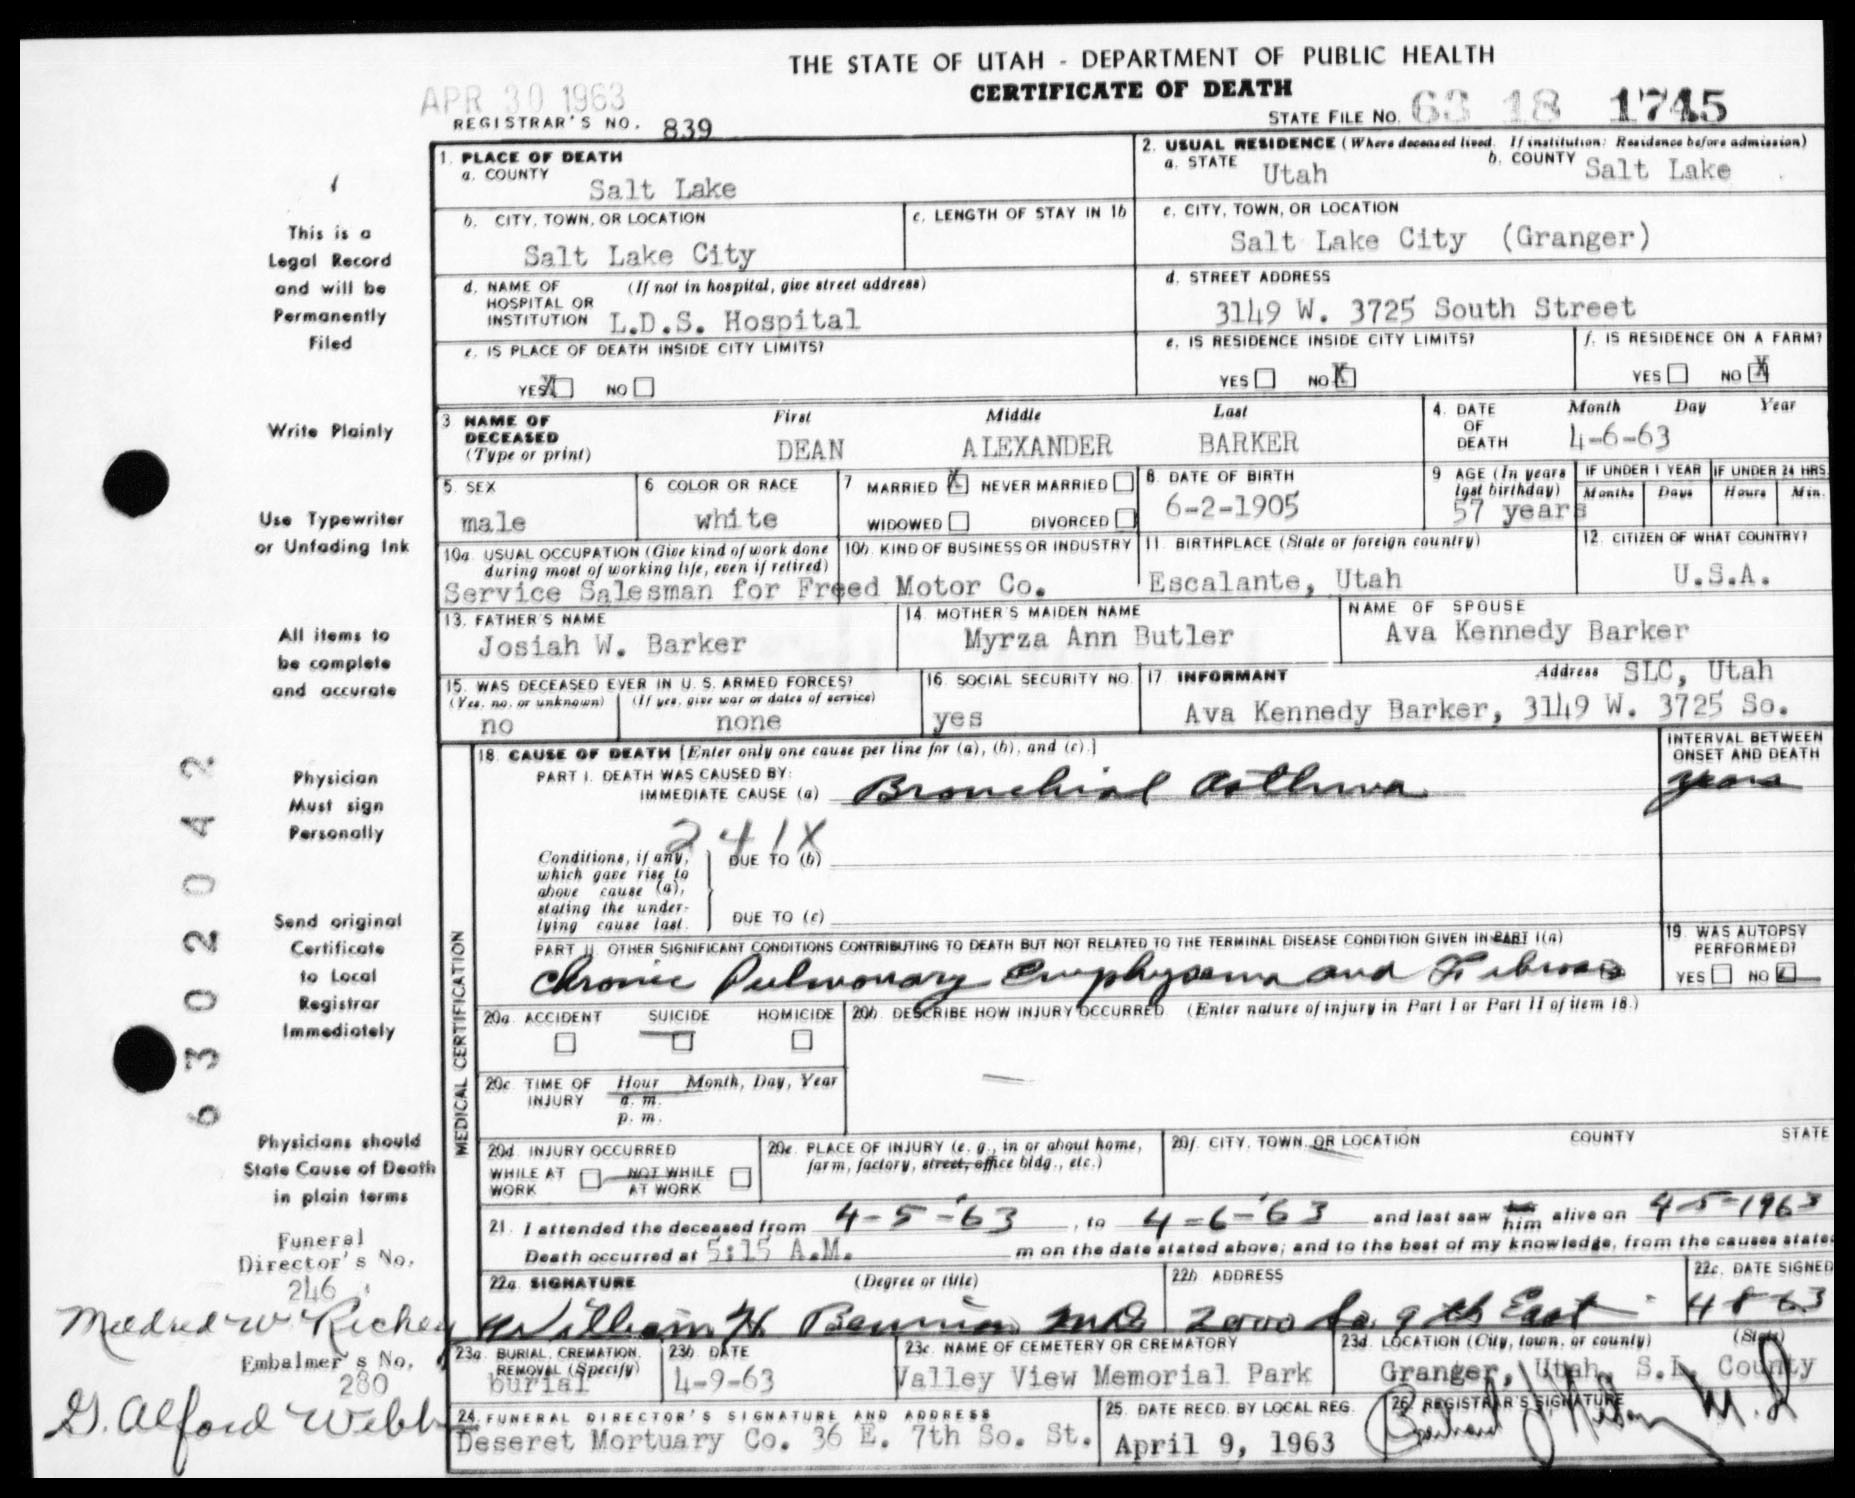 THE STATE OF UTAH - DEPARTMENT OF PUBLIC HEALTH
CERTIFICATE OF DEATH
APR 30 1963
REGISTRAR'S NO. 839
STATE FILE NO. 63 18 1745
1. PLACE OF DEATH
a. COUNTY
Salt Lake
2. USUAL RESIDENCE (Where deceased lived. If institution: Residence before admission)
a. STATE Utah b. COUNTY Salt Lake
b. CITY, TOWN, OR LOCATION
Salt Lake City
c. LENGTH OF STAY IN 1b
c. CITY, TOWN, OR LOCATION
Salt Lake City (Granger)
d. NAME OF HOSPITAL OR INSTITUTION (If not in hospital, give street address)
L.D.S. Hospital
d. STREET ADDRESS
3149 W. 3725 South Street
e. IS PLACE OF DEATH INSIDE CITY LIMITS?
YES X NO
e. IS RESIDENCE INSIDE CITY LIMITS?
YES NO X
f. IS RESIDENCE ON A FARM?
YES NO X
3 NAME OF DECEASED (Type or print)
First Middle Last
DEAN ALEXANDER BARKER
4. DATE OF DEATH
Month Day Year
4-6-63
5. SEX
male
6 COLOR OR RACE
white
7 MARRIED X NEVER MARRIED
WIDOWED DIVORCED
8. DATE OF BIRTH
6-2-1905
9 AGE (In years last birthday)
57 years
IF UNDER 1 YEAR
Months Days
IF UNDER 24 HRS.
Hours Min.
10a. USUAL OCCUPATION (Give kind of work done during most of working life, even if retired)
10b. KIND OF BUSINESS OR INDUSTRY
Service Salesman for Freed Motor Co.
11. BIRTHPLACE (State or foreign country)
Escalante, Utah
12. CITIZEN OF WHAT COUNTRY?
U.S.A.
13. FATHER'S NAME
Josiah W. Barker
14. MOTHER'S MAIDEN NAME
Myrza Ann Butler
NAME OF SPOUSE
Ava Kennedy Barker
15. WAS DECEASED EVER IN U. S. ARMED FORCES?
(Yes, no, or unknown) (If yes, give war or dates of service)
no none
16. SOCIAL SECURITY NO.
yes
17 INFORMANT Address SLC, Utah
Ava Kennedy Barker, 3149 W. 3725 So.
MEDICAL CERTIFICATION
18. CAUSE OF DEATH [Enter only one cause per line for (a), (b), and (c).]
PART I. DEATH WAS CAUSED BY:
IMMEDIATE CAUSE (a) Bronchial Asthma
INTERVAL BETWEEN ONSET AND DEATH
years
241X
Conditions, if any, which gave rise to above cause (a), stating the underlying cause last.
DUE TO (b)
DUE TO (c)
PART II OTHER SIGNIFICANT CONDITIONS CONTRIBUTING TO DEATH BUT NOT RELATED TO THE TERMINAL DISEASE CONDITION GIVEN IN PART I(a)
Chronic Pulmonary Emphysema and Fibrosis
19. WAS AUTOPSY PERFORMED?
YES NO
20a. ACCIDENT SUICIDE HOMICIDE
20b. DESCRIBE HOW INJURY OCCURRED (Enter nature of injury in Part I or Part II of item 18.)
20c. TIME OF INJURY Hour Month, Day, Year
a. m.
p. m.
20d. INJURY OCCURRED
WHILE AT WORK NOT WHILE AT WORK
20e. PLACE OF INJURY (e. g., in or about home, farm, factory, street, office bldg., etc.)
20f. CITY, TOWN, OR LOCATION COUNTY STATE
21. I attended the deceased from 4-5-'63, to 4-6-'63 and last saw him alive on 4-5-1963
Death occurred at 5:15 A.M. m on the date stated above; and to the best of my knowledge, from the causes stated
22a. SIGNATURE (Degree or title)
William H Bennion MD
22b. ADDRESS
2000 So. 9th East
22c. DATE SIGNED
4 8 63
23a. BURIAL, CREMATION, REMOVAL (Specify)
burial
23b. DATE
4-9-63
23c. NAME OF CEMETERY OR CREMATORY
Valley View Memorial Park
23d. LOCATION (City, town, or county) (State)
Granger, Utah, S.L. County
24. FUNERAL DIRECTOR'S SIGNATURE AND ADDRESS
Deseret Mortuary Co. 36 E. 7th So. St.
25. DATE RECD. BY LOCAL REG.
April 9, 1963
26. REGISTRAR'S SIGNATURE
M.D
This is a
Legal Record
and will be
Permanently
Filed
Write Plainly
Use Typewriter
or Unfading Ink
All items to
be complete
and accurate
Physician
Must sign
Personally
Send original
Certificate
to Local
Registrar
Immediately
Physicians should
State Cause of Death
in plain terms
Funeral
Director's No.
246
Mildred W. Richey
Embalmer's No.
280
G. Alford Webb
63 02042